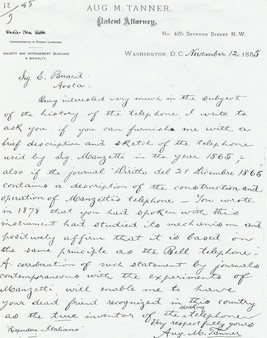 AUG. M. TANNER,
Patent Attorney,
No. 425 SEVENTH STREET N.W.
CORRESPONDENCE IN FOREIGN LANGUAGES
VALIDITY AND INFRINGEMENT SEARCHES
A SPECIALTY.
WASHINGTON, D.C. November 12, 1885
Sig E. Berard
Aosta.
Being interested very much in the subject
of the history of the telephone I write to
ask you if you can furnish me with a
brief description and sketch of the telephone
used by Sig Manzetti in the year 1865;
also if the journal Diritto del 21 Dicembre 1865
contains a description of the construction and
operation of Manzetti's telephone — You wrote
in 1878 that you had spoken with this
instrument had studied its mechanism and
positively affirm that it is based on
the same principle as the Bell telephone.
A corroboration of such statement by journals
contemporaneous with the experiments of
Manzetti will enable me to have
your dead friend recognized in this country
as the true inventor of the telephone
Very respectfully yours
Aug. M. Tanner